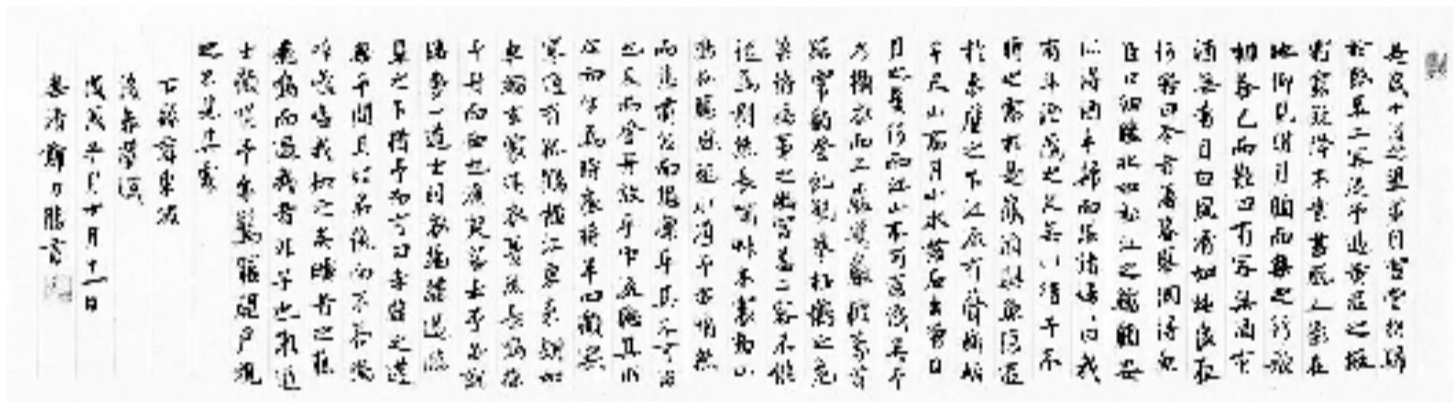 是歲十月之望步自雪堂將歸
於臨皋二客從予過黃泥之坂
霜露既降木葉盡脫人影在
地仰見明月顧而樂之行歌
相答已而歎曰有客無酒有
酒無肴月白風清如此良夜
何客曰今者薄暮舉網得魚
巨口細鱗狀如松江之鱸顧安
所得酒乎歸而謀諸婦婦曰我
有斗酒藏之久矣以待子不
時之需於是攜酒與魚復遊
於赤壁之下江流有聲斷岸
千尺山高月小水落石出曾日
月之幾何而江山不可復識矣予
乃攝衣而上履巉巖披蒙茸
踞虎豹登虯龍攀棲鶻之危
巢俯馮夷之幽宮蓋二客不能
從焉劃然長嘯草木震動山
鳴谷應風起水涌予亦悄然
而悲肅然而恐凜乎其不可留
也反而登舟放乎中流聽其所
止而休焉時夜將半四顧寂
寥適有孤鶴橫江東來翅如
車輪玄裳縞衣戛然長鳴掠
予舟而西也須臾客去予亦就
睡夢一道士羽衣蹁躚過臨
皋之下揖予而言曰赤壁之遊
樂乎問其姓名俛而不答嗚
呼噫嘻我知之矣疇昔之夜
飛鳴而過我者非子也耶道
士顧笑予亦驚寤開戶視
之不見其處
右錄蘇東坡
後赤壁賦
戊戌年十月十一日